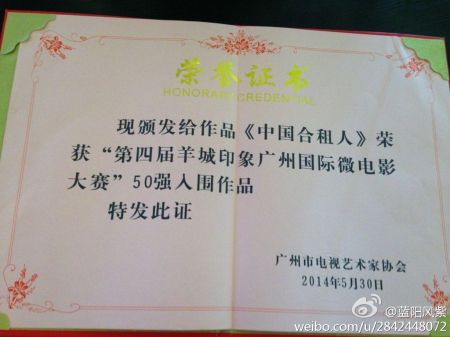 荣誉证书
HONORARY CREDENTIAL
现颁发给作品《中国合租人》荣
获“第四届羊城印象广州国际微电影
大赛”50强入围作品
特发此证
广州市电视艺术家协会
2014年5月30日
@蓝阳风紫
weibo.com/u/2842448072